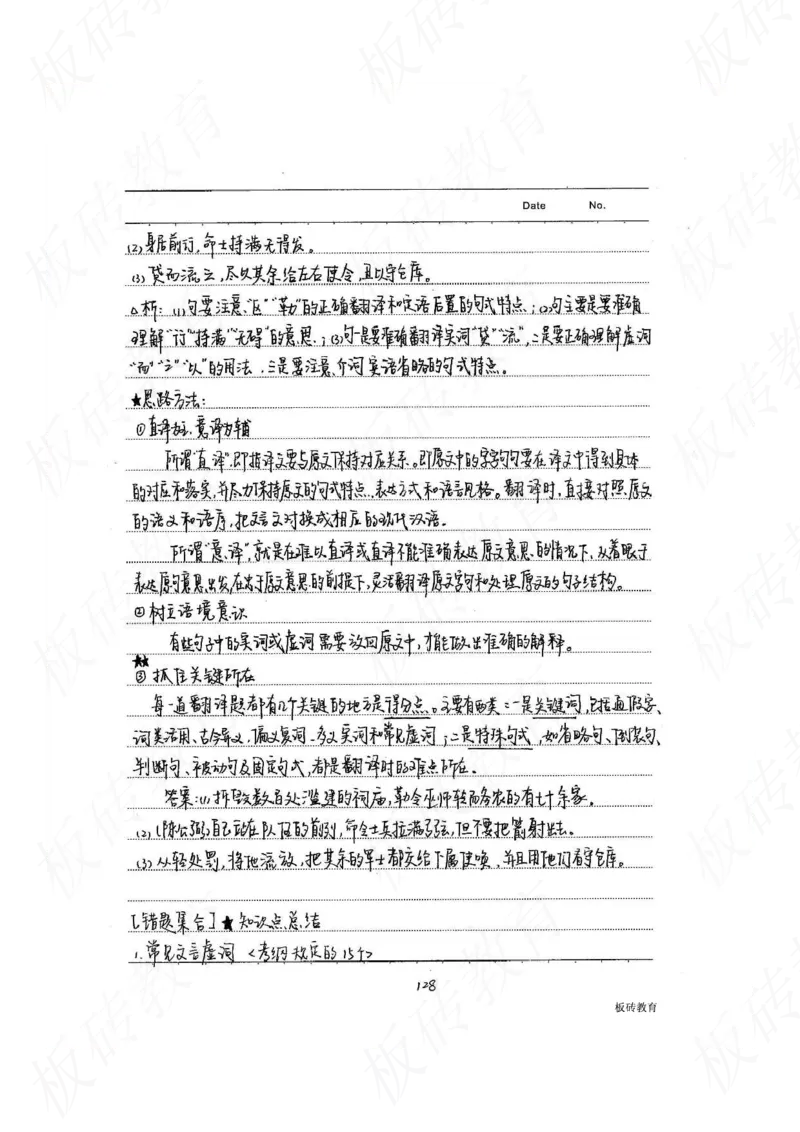 Date No.
(2)身居前行,命士持满无得发。
(3)贷而流之,尽以其余给左右使令,且以守仓库。
△析:(1)句要注意“区”“勒”的正确翻译和定语后置的句式特点;(2)句主要是要准确
理解“行”“持满”“无得”的意思;(3)句一是要准确翻译实词“贷”“流”,二是要正确理解虚词
“而”“之”“以”的用法,三是要注意介词宾语省略的句式特点。
★思路方法:
①直译为主,意译为辅
所谓“直译”,即指译文要与原文保持对应关系。即原文中的字字句句要在译文中得到具体
的对应和落实,并尽力保持原文的句式特点、表达方式和语言风格。翻译时,直接对照原文
的语义和语序,把文言文对换成相应的现代汉语。
所谓“意译”,就是在难以直译或直译不能准确表达原文意思的情况下,从着眼于
表达原句意思出发,在忠于原文意思的前提下,灵活翻译原文字句和处理原文的句子结构。
②树立语境意识
有些句子中的实词或虚词需要放回原文中,才能做出准确的解释。
★★
③抓住关键所在
每一道翻译题都有几个关键的地方是得分点。主要有两类:一是关键词,包括通假字、
词类活用、古今异义、偏义复词、多义实词和常见虚词;二是特殊句式,如省略句、倒装句、
判断句、被动句及固定句式,都是翻译时的难点所在。
答案:(1)拆毁数百处滥建的祠庙,勒令巫师转而务农的有七十余家。
(2)(陈公弼)自己站在队伍的前列,命令士兵拉满弓弦,但不要把箭射出去。
(3)从轻处罚,将他流放,把其余的军士都交给下属使唤,并且用他们看守仓库。
[错题集合]★知识点总结
1.常见文言虚词<考纲规定的15个>
128
板砖教育